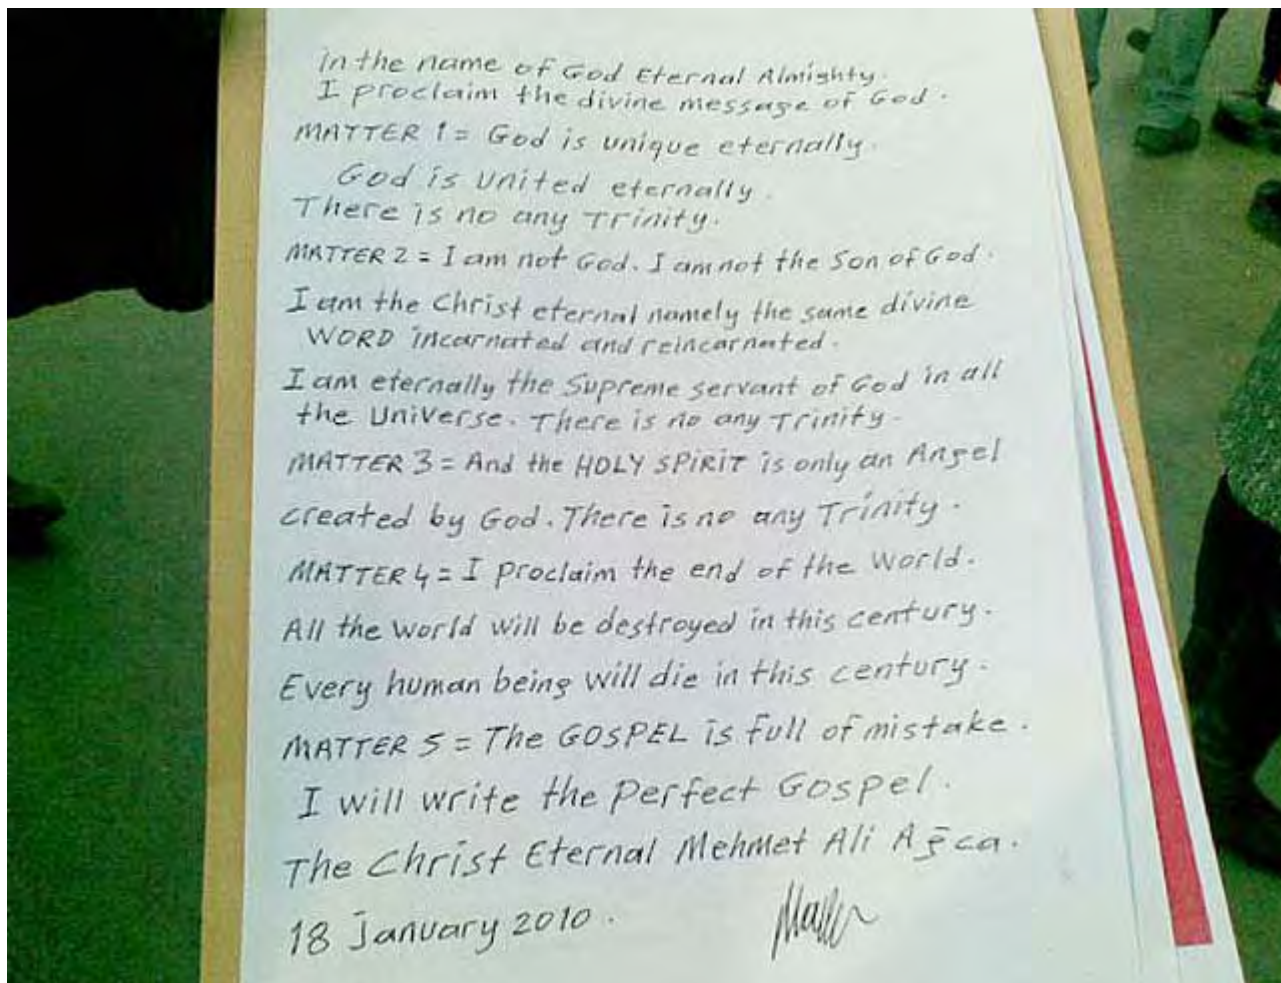 in the name of God Eternal Almighty.
I proclaim the divine message of God.
MATTER 1 = God is unique eternally.
God is united eternally.
There is no any Trinity.
MATTER 2 = I am not God. I am not the Son of God.
I am the Christ eternal namely the same divine
WORD incarnated and reincarnated.
I am eternally the Supreme servant of God in all
the Universe. There is no any Trinity.
MATTER 3 = And the HOLY SPIRIT is only an Angel
created by God. There is no any Trinity.
MATTER 4 = I proclaim the end of the World.
All the world will be destroyed in this century.
Every human being will die in this century.
MATTER 5 = The GOSPEL is full of mistake.
I will write the Perfect Gospel.
The Christ Eternal Mehmet Ali Ağca.
18 January 2010.